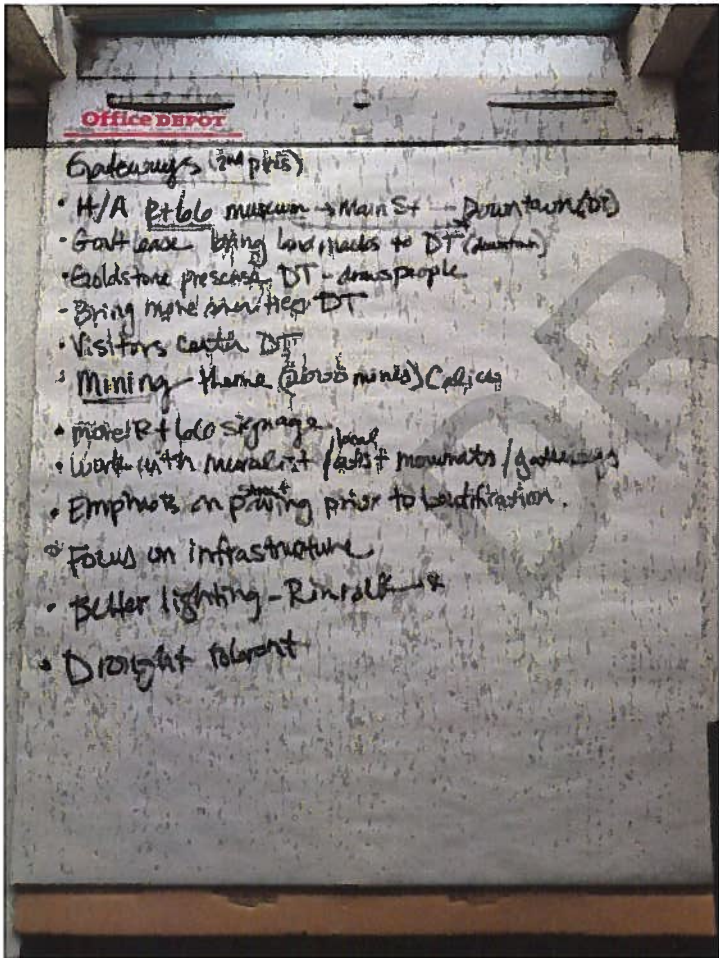 Office DEPOT
Gateways (2nd
• H/A Rt 66 museum → Main St - Downtown (DT)
• Gov't lease bring landmarks to DT (downtown)
• Goldstone presense DT - draws people
- Bring more amenities DT
• Visitors Center DT
• Mining - theme mines) Calico
• more Rt 66 signage
• Work with muralist / local
/ gateways
• Emphasis on paving prior to beautification.
• Focus on infrastructure
• Better lighting -
• Drought tolerant
DR